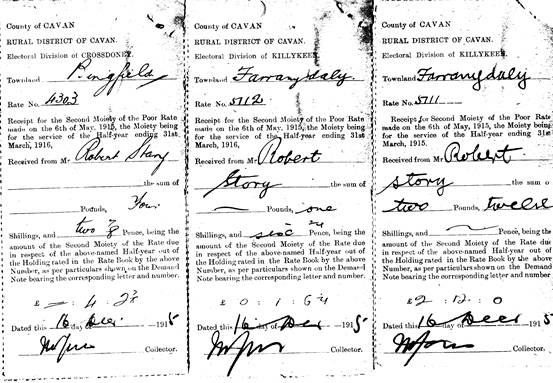 County of CAVAN
RURAL DISTRICT OF CAVAN.
Electoral Division of CROSSDONEY.
Townland Ringfield
Rate No. 4303
Receipt for the Second Moiety of the Poor Rate
made on the 6th of May, 1915, the Moiety being
for the service of the Half-year ending 31st
March, 1916,
Received from Mr Robert Story
the sum of
Pounds, Four
Shillings, and two Pence, being the
amount of the Second Moiety of the Rate due
in respect of the above-named Half-year out of
the Holding rated in the Rate Book by the above
Number, as per particulars shown on the Demand
Note bearing the corresponding letter and number.
£ — : 4 :
Dated this 16 day of Decr 1915
Collector.
County of CAVAN
RURAL DISTRICT OF CAVAN.
Electoral Division of KILLYKEEN.
Townland Farranydaly.
Rate No. 5712
Receipt for the Second Moiety of the Poor Rate
made on the 6th of May, 1915, the Moiety being
for the service of the Half-year ending 31st
March, 1916,
Received from Mr Robert
Story the sum of
Pounds, one
Shillings, and six Pence, being the
amount of the Second Moiety of the Rate due
in respect of the above-named Half-year out of
the Holding rated in the Rate Book by the above
Number, as per particulars shown on the Demand
Note bearing the corresponding letter and number.
£ 0 : 1 :
Dated this 16 day of Decr 1915
Collector.
County of CAVAN
RURAL DISTRICT OF CAVAN.
Electoral Division of KILLYKEEN.
Townland Farranydaly
Rate No. 5711
Receipt for the Second Moiety of the Poor Rate
made on the 6th of May, 1915, the Moiety being
for the service of the Half-year ending 31st
March, 1915.
Received from Mr Robert
Story the sum o
two Pounds, twelve
Shillings, and — Pence, being the
amount of the Second Moiety of the Rate due
in respect of the above-named Half-year out of
the Holding rated in the Rate Book by the above
Number, as per particulars shown on the Demand
Note bearing the corresponding letter and number.
£2 : 12 : 0
Dated this 16 day of Decr 1915
Collector.